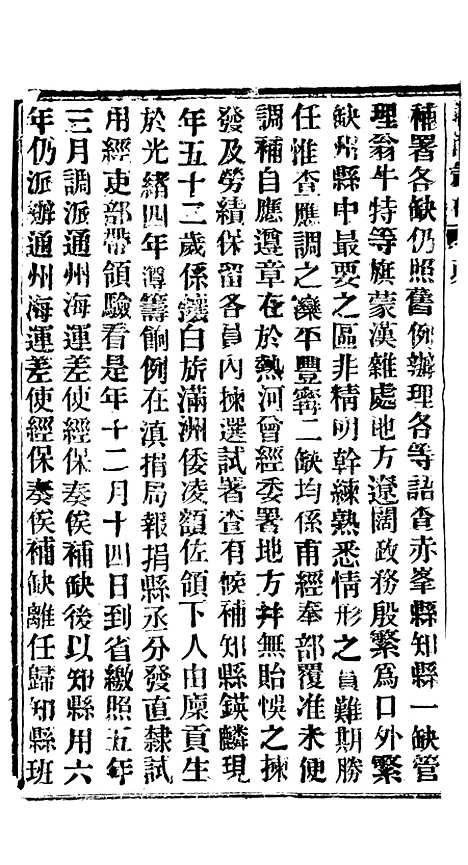 補署各缺仍照舊例辦理各等語查赤峯縣知縣一缺管
理翁牛特等旗蒙漢雜處地方遼闊政務殷繁爲口外繁
缺州縣中最要之區非精明幹練熟悉情形之員難期勝
任惟查應調之灤平豐寧二缺均係甫經奉部覆准未便
調補自應遵章在於熱河曾經委署地方幷無貽悞之揀
發及勞績保留各員內揀選試署查有候補知縣鍈麟現
年五十三歲係鑲白旂滿洲倭凌額佐領下人由廪貢生
於光緒四年遵籌餉例在滇捐局報捐縣丞分發直隸試
用經吏部帶領驗看是年十二月十四日到省繳照五年
三月調派通州海運差使經保奏俟補缺後以知縣用六
年仍派辦通州海運差使經保奏俟補缺離任歸知縣班